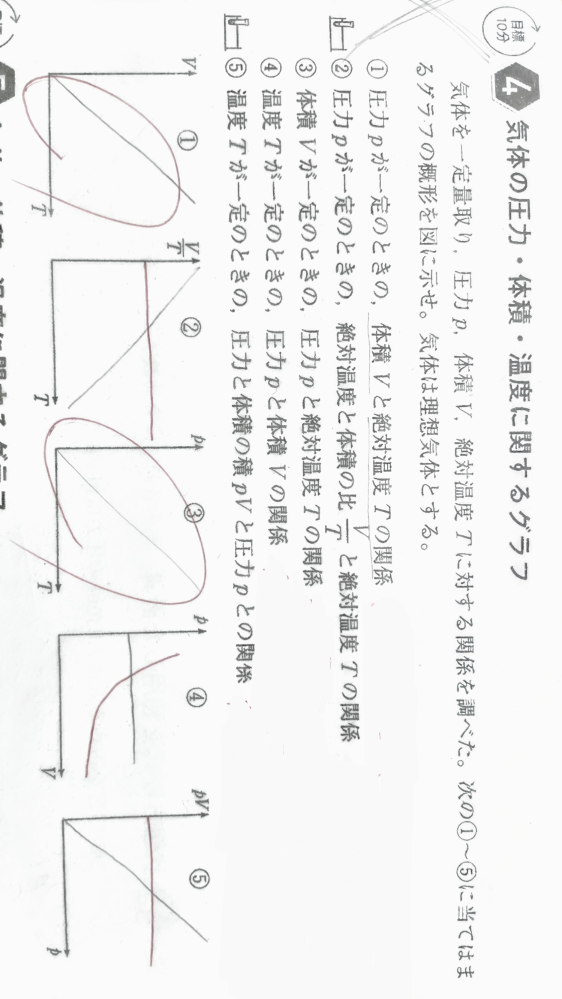 目標
10分
4 気体の圧力・体積・温度に関するグラフ
気体を一定量取り，圧力p，体積V，絶対温度Tに対する関係を調べた。次の①～⑤に当てはま
るグラフの概形を図に示せ。気体は理想気体とする。
① 圧力pが一定のときの，体積Vと絶対温度Tの関係
② 圧力pが一定のときの，絶対温度と体積の比V/Tと絶対温度Tの関係
③ 体積Vが一定のときの，圧力pと絶対温度Tの関係
④ 温度Tが一定のときの，圧力pと体積Vの関係
⑤ 温度Tが一定のときの，圧力と体積の積pVと圧力pとの関係
① ② ③ ④ ⑤
V V/T p p pV
T T T V p